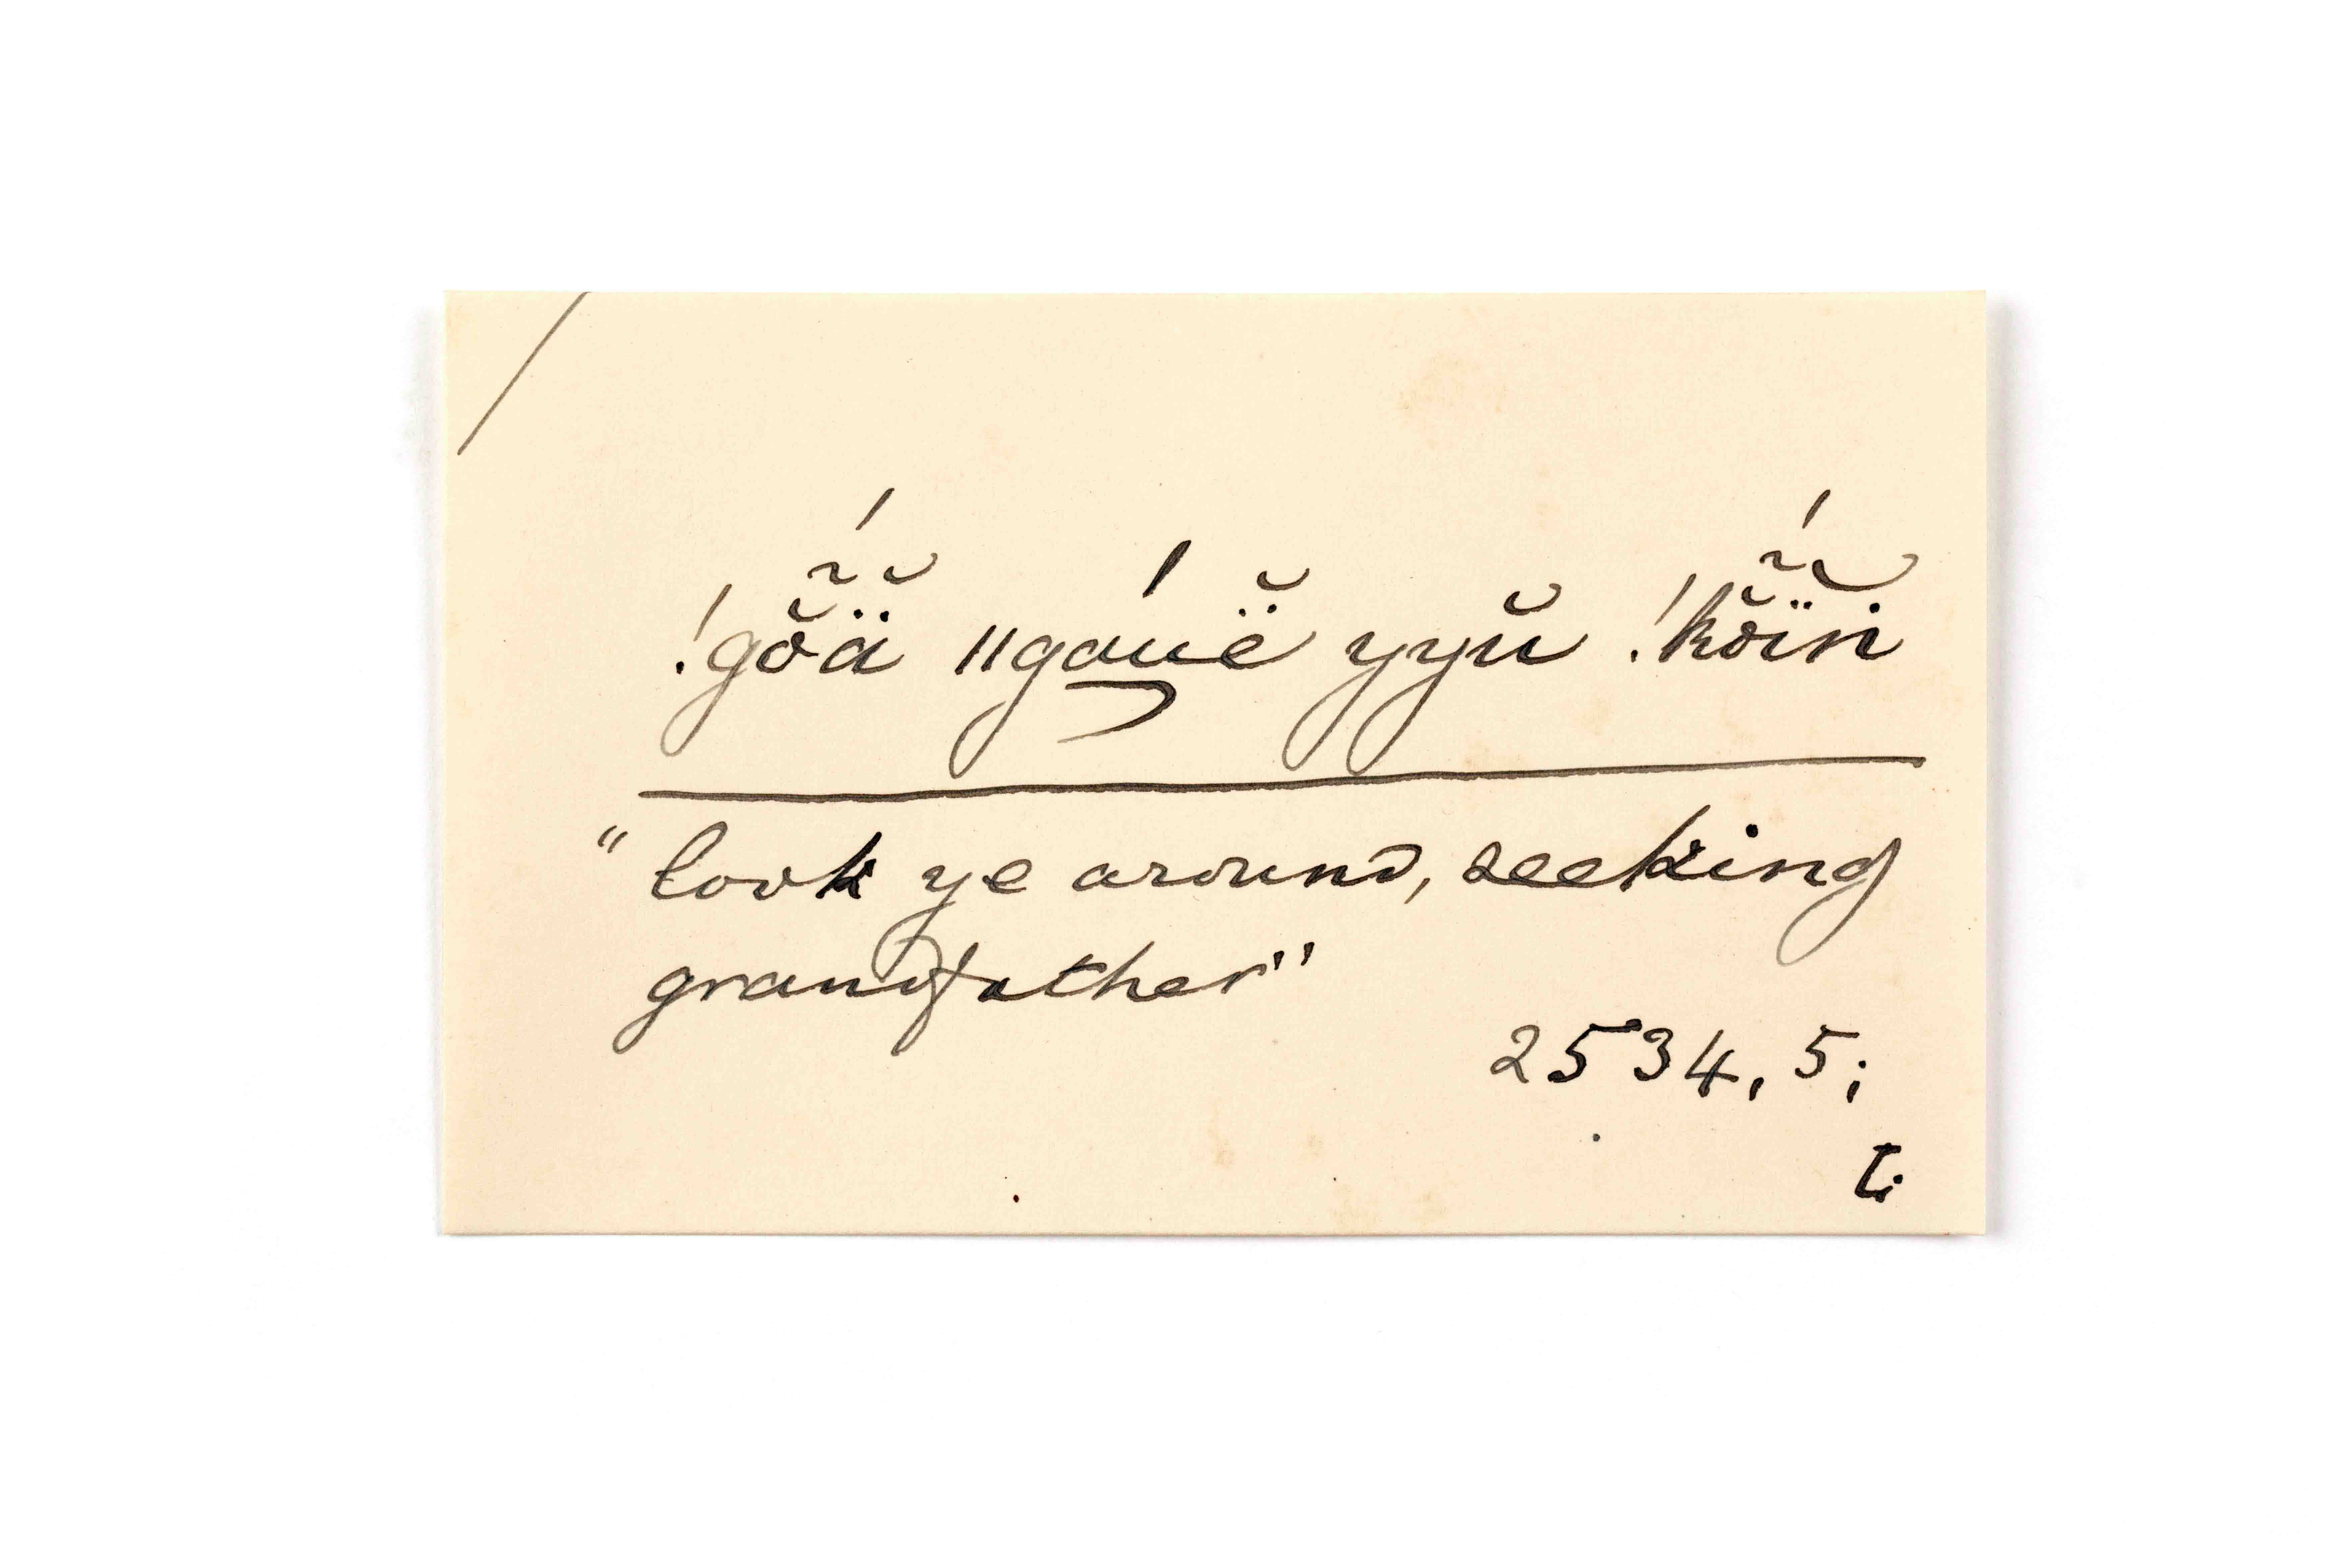 !gõ̆ä̆́ ‖gaú̯ë̆ yyŭ !kõ̆ḯ̆n
"look ye around, seeking
grandfather"
2534, 5;
t.